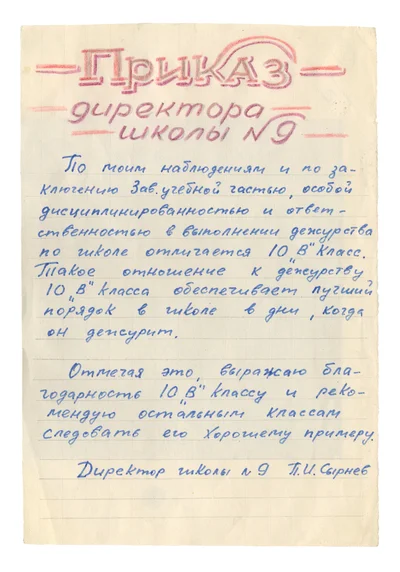 Приказ
директора
школы №9
По моим наблюдениям и по за-
ключению Зав. учебной частью, особой
дисциплинированностью и ответ-
ственностью в выполнении дежурства
по школе отличается 10 „В" класс.
Такое отношение к дежурству
10 „В" класса обеспечивает лучший
порядок в школе в дни, когда
он дежурит.
Отмечая это, выражаю бла-
годарность 10 „В" классу и реко-
мендую остальным классам
следовать его хорошему примеру.
Директор школы №9 П.И. Сырнев